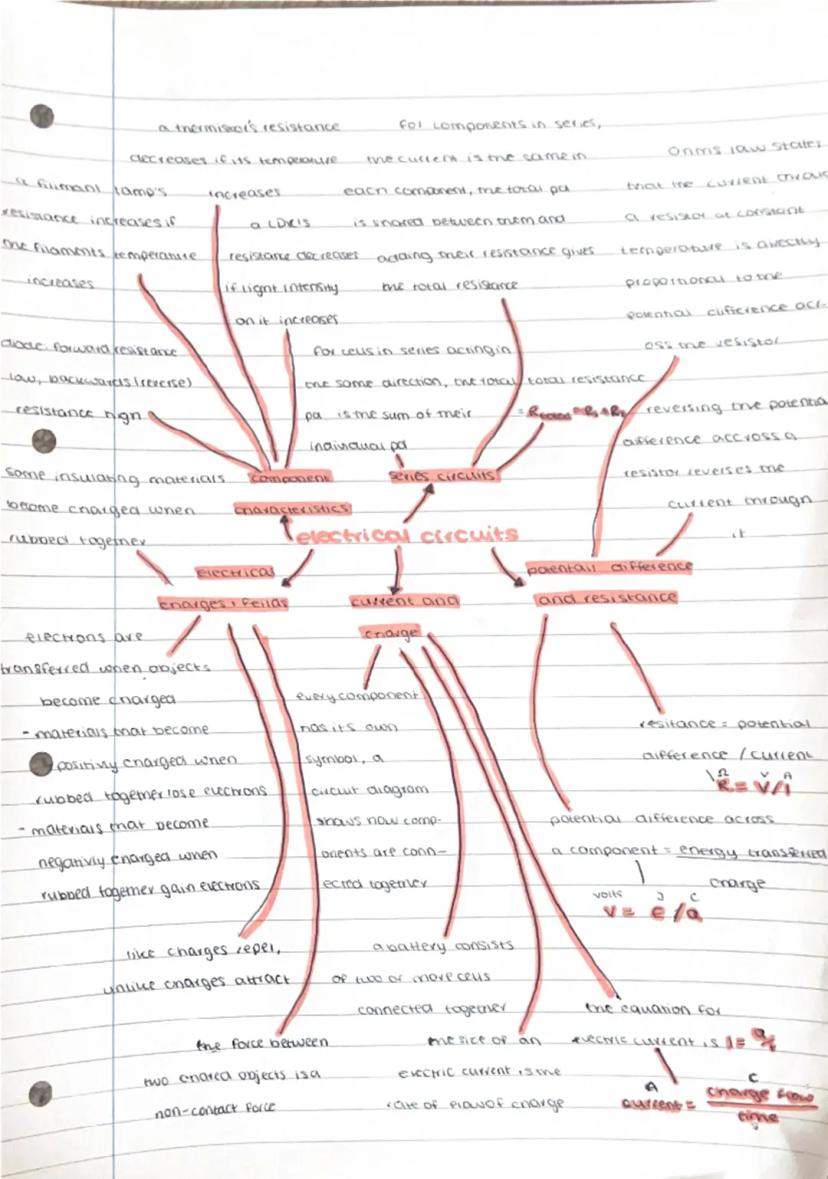 a thermistor's resistance
decreases if its temperature
increases
for components in series,
the current is the same in
each component, the total pd
is shared between them and
adding their resistance gives
the total resistance
Ohms law states
that the current throug
a resistor at constant
temperature is directly
proportional to the
potential difference acr-
oss the resistor
a filimant lamp's
resistance increases if
the filaments temperature
increases
a LDR's
resistance decreases
if light intensity
on it increases
diode: forward resistance
low, backwards (reverse)
resistance high
for cells in series acting in
the same direction, the total
pd is the sum of their
individual pd
total resistance
= Rtotal = R1 + R2
reversing the potentia
difference accross a
resistor reverses the
current through
it
some insulating materials
become charged when
rubbed together
component
characteristics
series circuits
electrical circuits
electrical
charges + feilds
current and
charge
potentail difference
and resistance
electrons are
transferred when objects
become charged
- materials that become
positivly charged when
rubbed together lose electrons
- materials that become
negativly charged when
rubbed together gain electrons
every component
has its own
symbol, a
circuit diagram
shows how comp-
onents are conn-
ected together
resitance = potential
difference / current
Ω V A
R = V/I
potential difference across
a component = energy transferred
charge
volts J C
V = E/Q
like charges repel,
unlike charges attract
a battery consists
of two or more cells
connected together
the force between
two chared objects is a
non-contact force
the size of an
electric current is the
rate of flow of charge
the equation for
electric current is I = Q/t
A C
current = charge flow
time
s